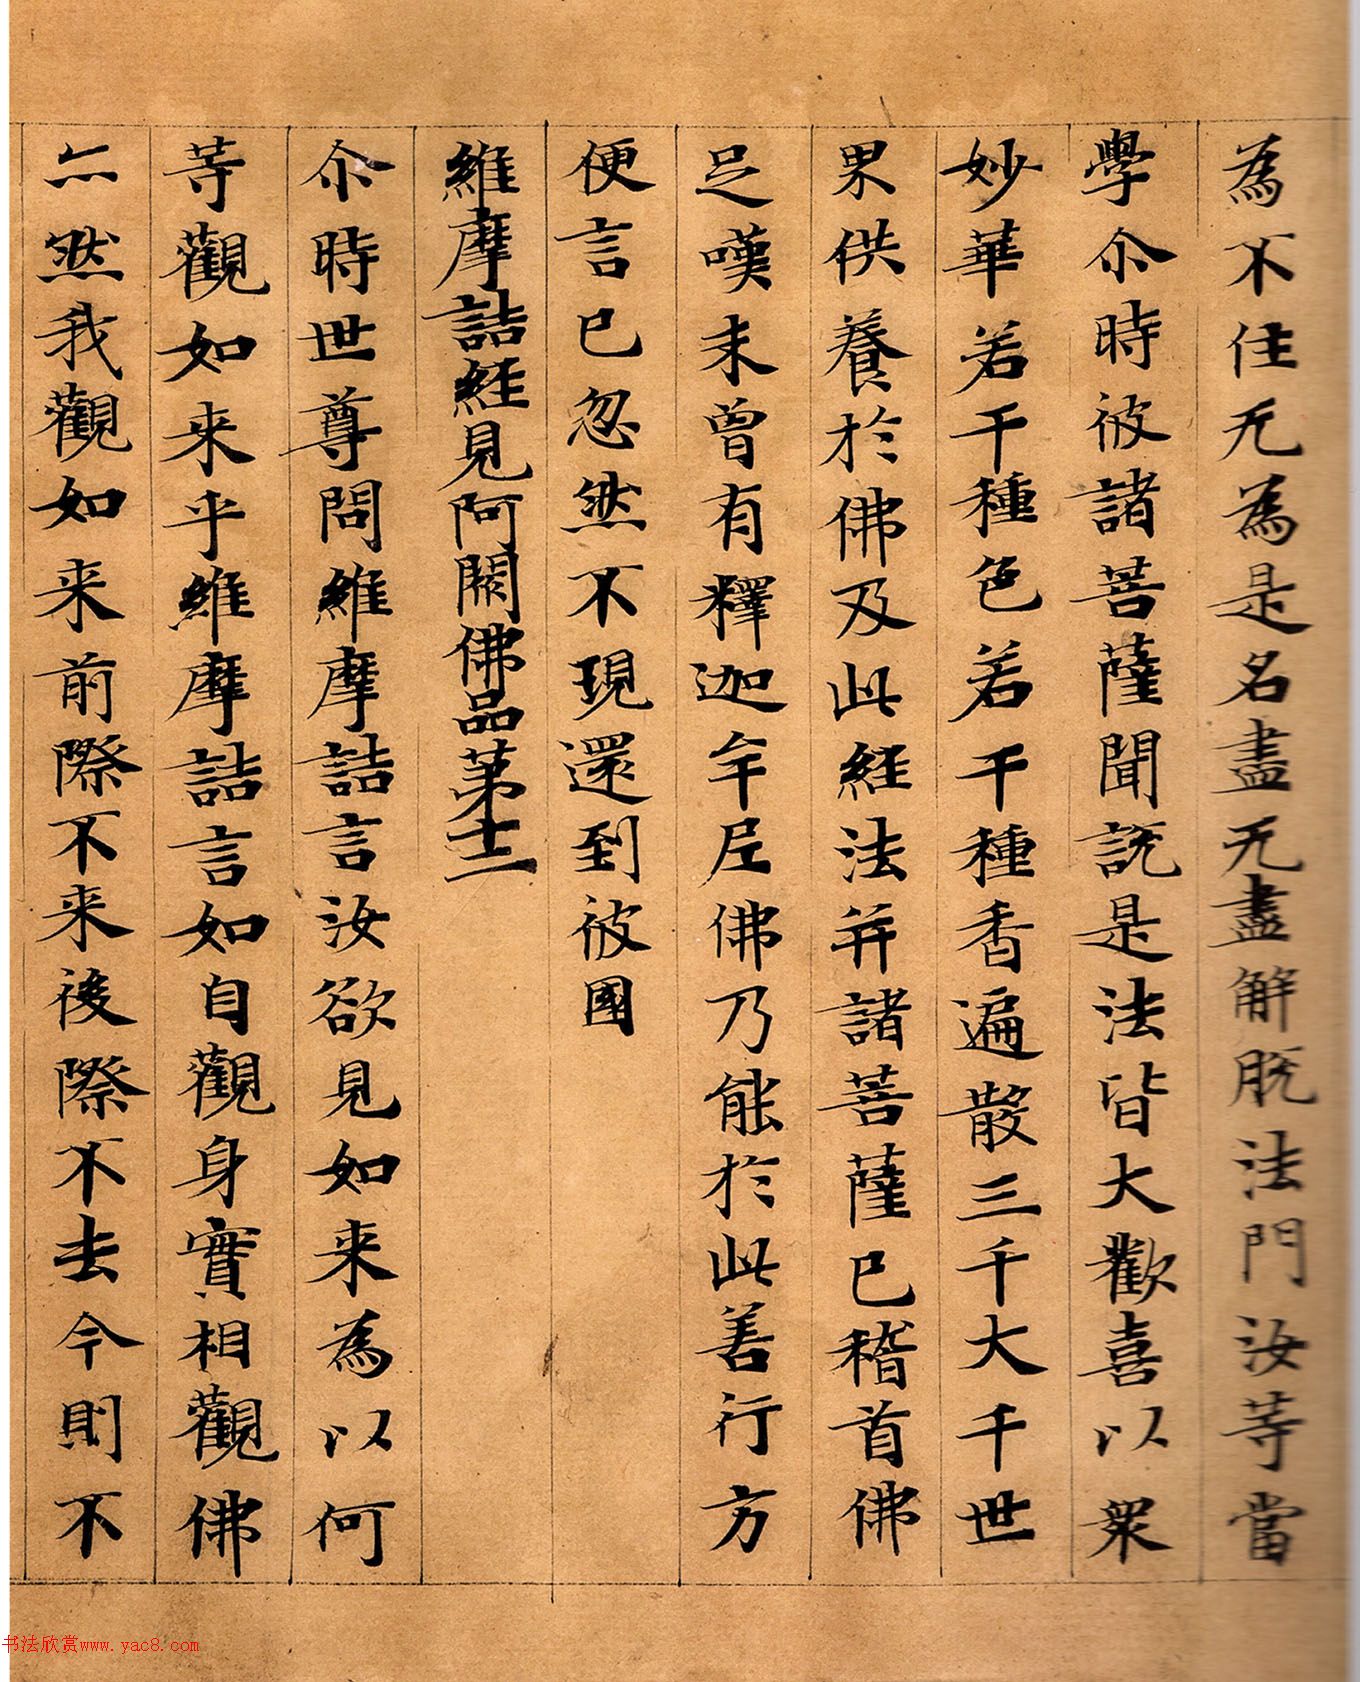 為不住无為是名盡无盡解脫法門汝等當
學尒時彼諸菩薩聞説是法皆大歡喜以衆
妙華若干種色若干種香遍散三千大千世
界供養於佛及此經法并諸菩薩已稽首佛
足嘆未曾有釋迦牟尼佛乃能於此善行方
便言已忽然不現還到彼國
維摩詰經見阿閦佛品第十二
尒時世尊問維摩詰言汝欲見如来為以何
等觀如来乎維摩詰言如自觀身實相觀佛
亦然我觀如来前際不来後際不去今則不
书法欣赏www.yac8.com